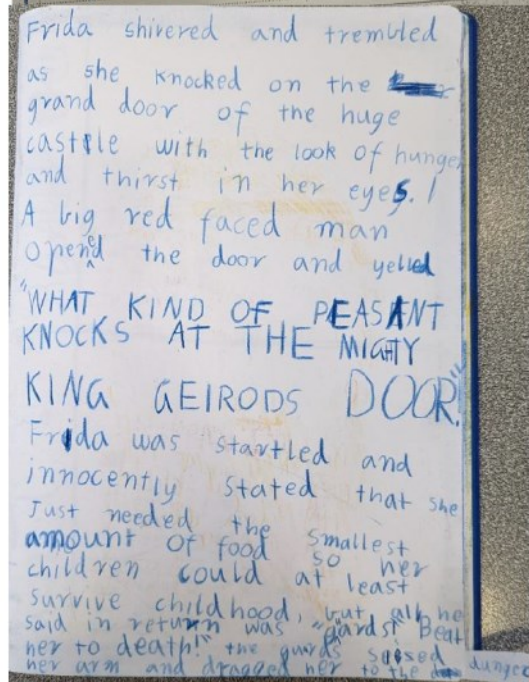 Frida shivered and trembled
as she knocked on the
grand door of the huge
castle with the look of hunger
and thirst in her eyes. /
A big red faced man
opened the door and yelled
"WHAT KIND OF PEASANT
KNOCKS AT THE MIGHTY
KING GEIRODS DOOR!"
Frida was startled and
innocently stated that she
Just needed the smallest
amount of food so her
children could at least
survive childhood, but all he
said in return was "gards! Beat
her to death!" the guards seised
her arm and dragged her to the dungeo